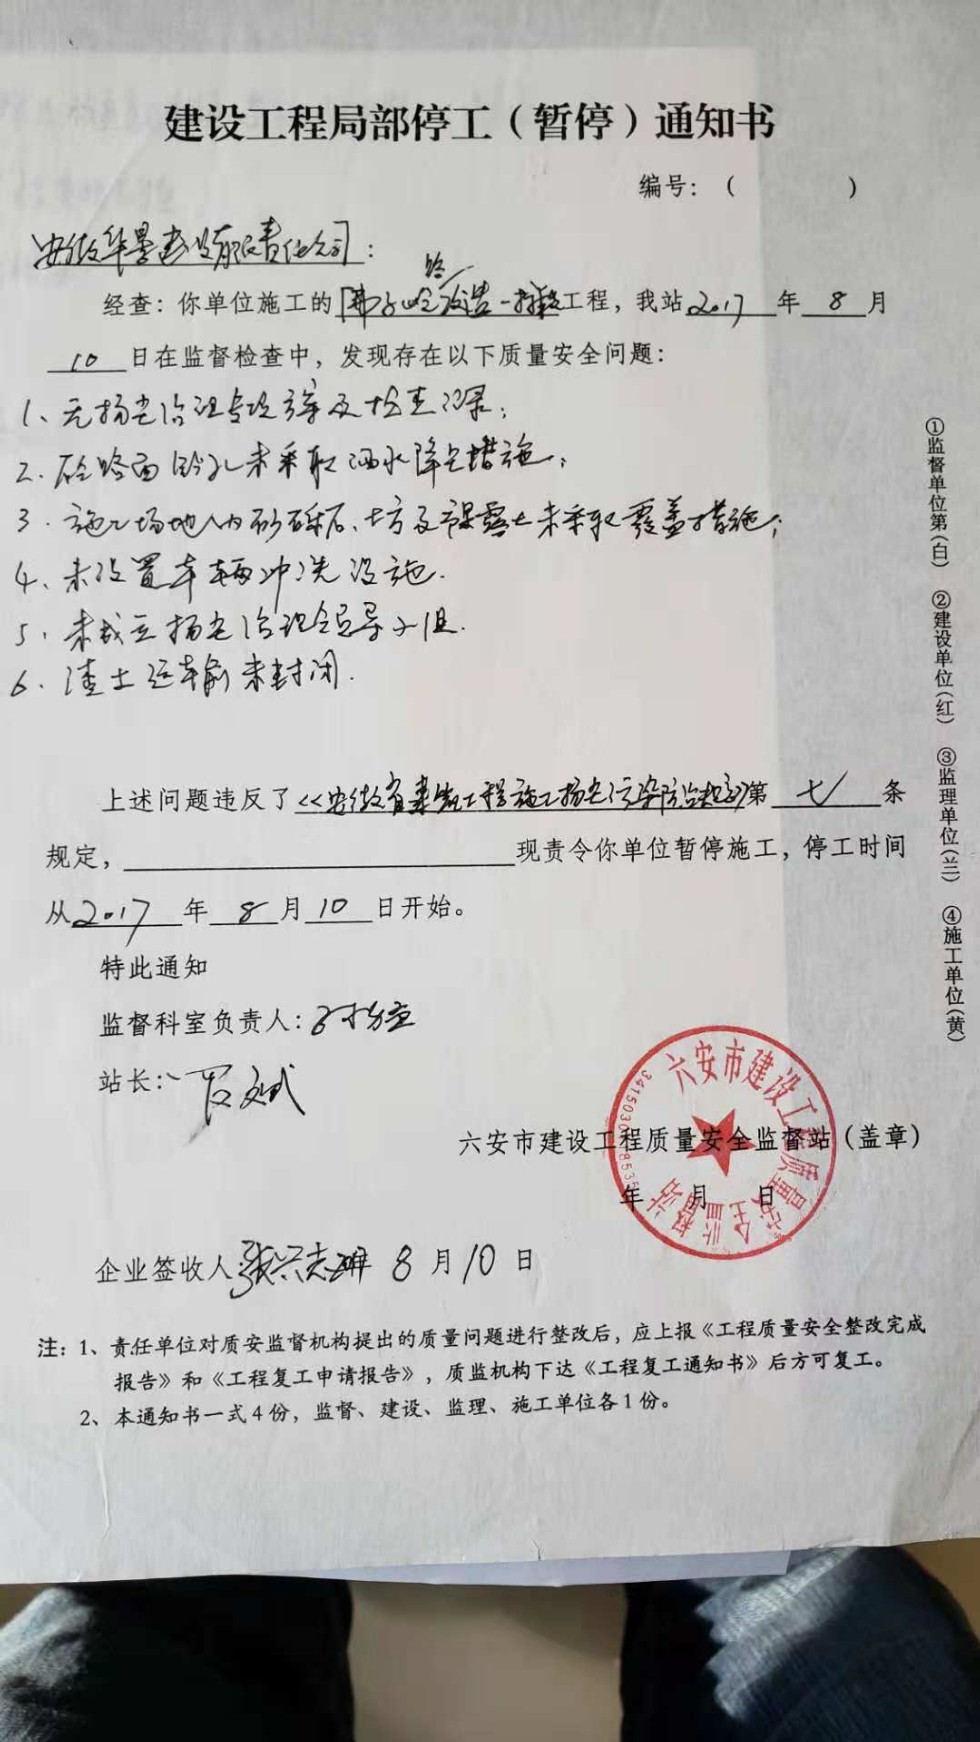 建设工程局部停工（暂停）通知书
编号：（ ）
安徽华景建设有限责任公司：
经查：你单位施工的佛子岭路改造一标段工程，我站2017年8月
10日在监督检查中，发现存在以下质量安全问题：
1、无扬尘治理专项方案及检查记录；
2、砼路面钻孔未采取洒水降尘措施；
3、施工场地内砂砾石、土方及裸露土未采取覆盖措施；
4、未设置车辆冲洗设施.
5、未成立扬尘治理领导小组.
6、渣土运输未封闭.
上述问题违反了《安徽省建筑工程施工扬尘污染防治规定》第七条
规定，现责令你单位暂停施工，停工时间
从2017年8月10日开始。
特此通知
监督科室负责人：
站长：
六安市建设工程质量安全监督站（盖章）
年 月 日
企业签收人 8月10日
注：1、责任单位对质安监督机构提出的质量问题进行整改后，应上报《工程质量安全整改完成
报告》和《工程复工申请报告》，质监机构下达《工程复工通知书》后方可复工。
2、本通知书一式4份，监督、建设、监理、施工单位各1份。
①监督单位第(白) ②建设单位(红) ③监理单位(兰) ④施工单位(黄)
六安市建设工程质量安全监督站